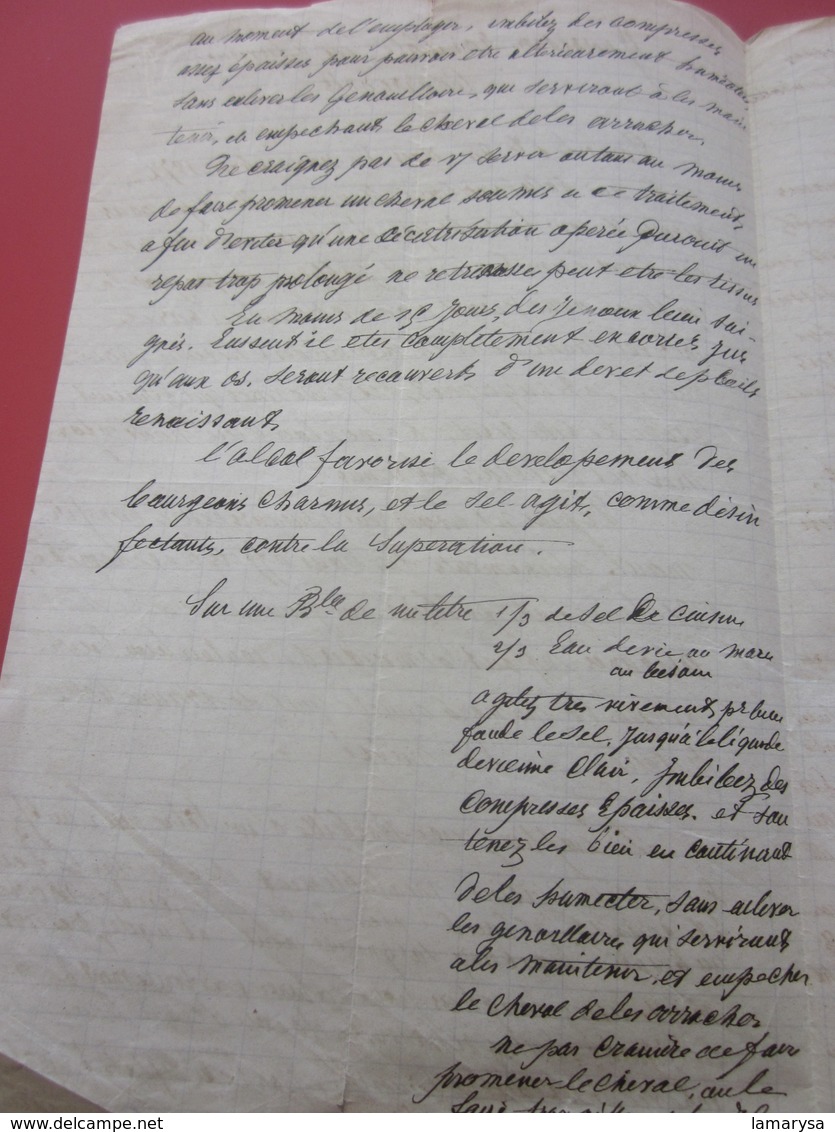 au moment de l'employer, imbibez des compresses
assez épaisses pour pouvoir etre ultérieurement humectées
sans enlever les Genouilleres, que serviront à les main
tenir, et empechant le cheval de les arracher.
Ne craignez pas de vous servir au moins
de faire promener un cheval soumis a ce traitement,
afin d'eviter qu'une cicatrisation operée durant un
repas trop prolongé ne retrecisse peut etre les tissus
En moins de 15 Jours, des Jenoux bien Soi-
gnés. Eussent il etes completement encories jus
qu'aux os. Seront recouverts d'un duvet de poils
renaissants
l'alcol favorise le developement des
bourgeons charnus, et le sel agit, comme désin
fectants, contre la Superation.
Sur une Blle de un litre 1/3 de Sel De Cuisine
2/3 Eau de vie au marc
au besoin
agitez tres vivement, pr bien
fondre le Sel, Jusqu'à le liquide
devienne Clair, Imbibez des
Compresses Epaisses. et Sou
tenez les bien en Continuant
De les humecter, sans enlever
les genoullaires qui serviront
a les maintenir, et empecher
le cheval de les arracher
ne pas craindre de fair
promener le cheval, ou le